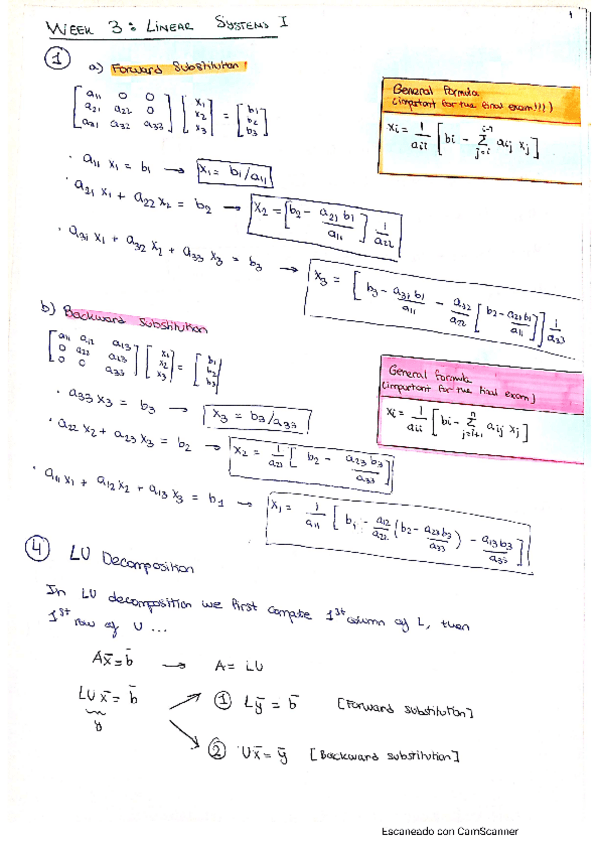 WEEK 3: LINEAR SYSTEMS I
1
① a) Forward Substitution!
General Formula
(important for the final exam!!!)
[a11 0 0; a21 a22 0; a31 a32 a33] [x1; x2; x3] = [b1; b2; b3]
xi = 1/aii [bi - Σ_{j=i}^{i-1} aij xj]
· a11 x1 = b1 → x1 = b1/a11
· a21 x1 + a22 x2 = b2 → x2 = [b2 - a21 b1/a11] 1/a22
· a31 x1 + a32 x2 + a33 x3 = b3 → x3 = [b3 - a31 b1/a11 - a32/a22 [b2 - a21 b1/a11]] 1/a33
b) Backward Substitution
[a11 a12 a13; 0 a22 a13; 0 0 a33] [x1; x2; x3] = [b1; b2; b3]
General formula
(important for the final exam)
xi = 1/aii [bi - Σ_{j=i+1}^{n} aij xj]
· a33 x3 = b3 → x3 = b3/a33
· a22 x2 + a23 x3 = b2 → x2 = 1/a22 [b2 - a23 b3/a33]
· a11 x1 + a12 x2 + a13 x3 = b1 → x1 = 1/a11 [b1 - a12/a22 (b2 - a23 b3/a33) - a13 b3/a33]
④ LU Decomposition
In LU decomposition we first compute 1st column of L, then
1st row of U ...
Ax̄ = b̄ → A = LU
LUx̄ = b̄ ① Lȳ = b̄ [Forward substitution]
y
② Ux̄ = ȳ [Backward substitution]
Escaneado con CamScanner